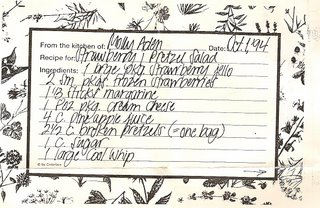 From the kitchen of: Molly Aden Date: Oct. 1, '94
Recipe for: Strawberry / Pretzel Salad
Ingredients: 1 large pkg strawberry jello
2 sm. pkgs. frozen strawberries
1 1/3 sticks margarine
1 8 oz. pkg. cream cheese
4 C. pineapple juice
2 1/2 C. broken pretzels (= one bag)
1 C. sugar
1 large Cool Whip